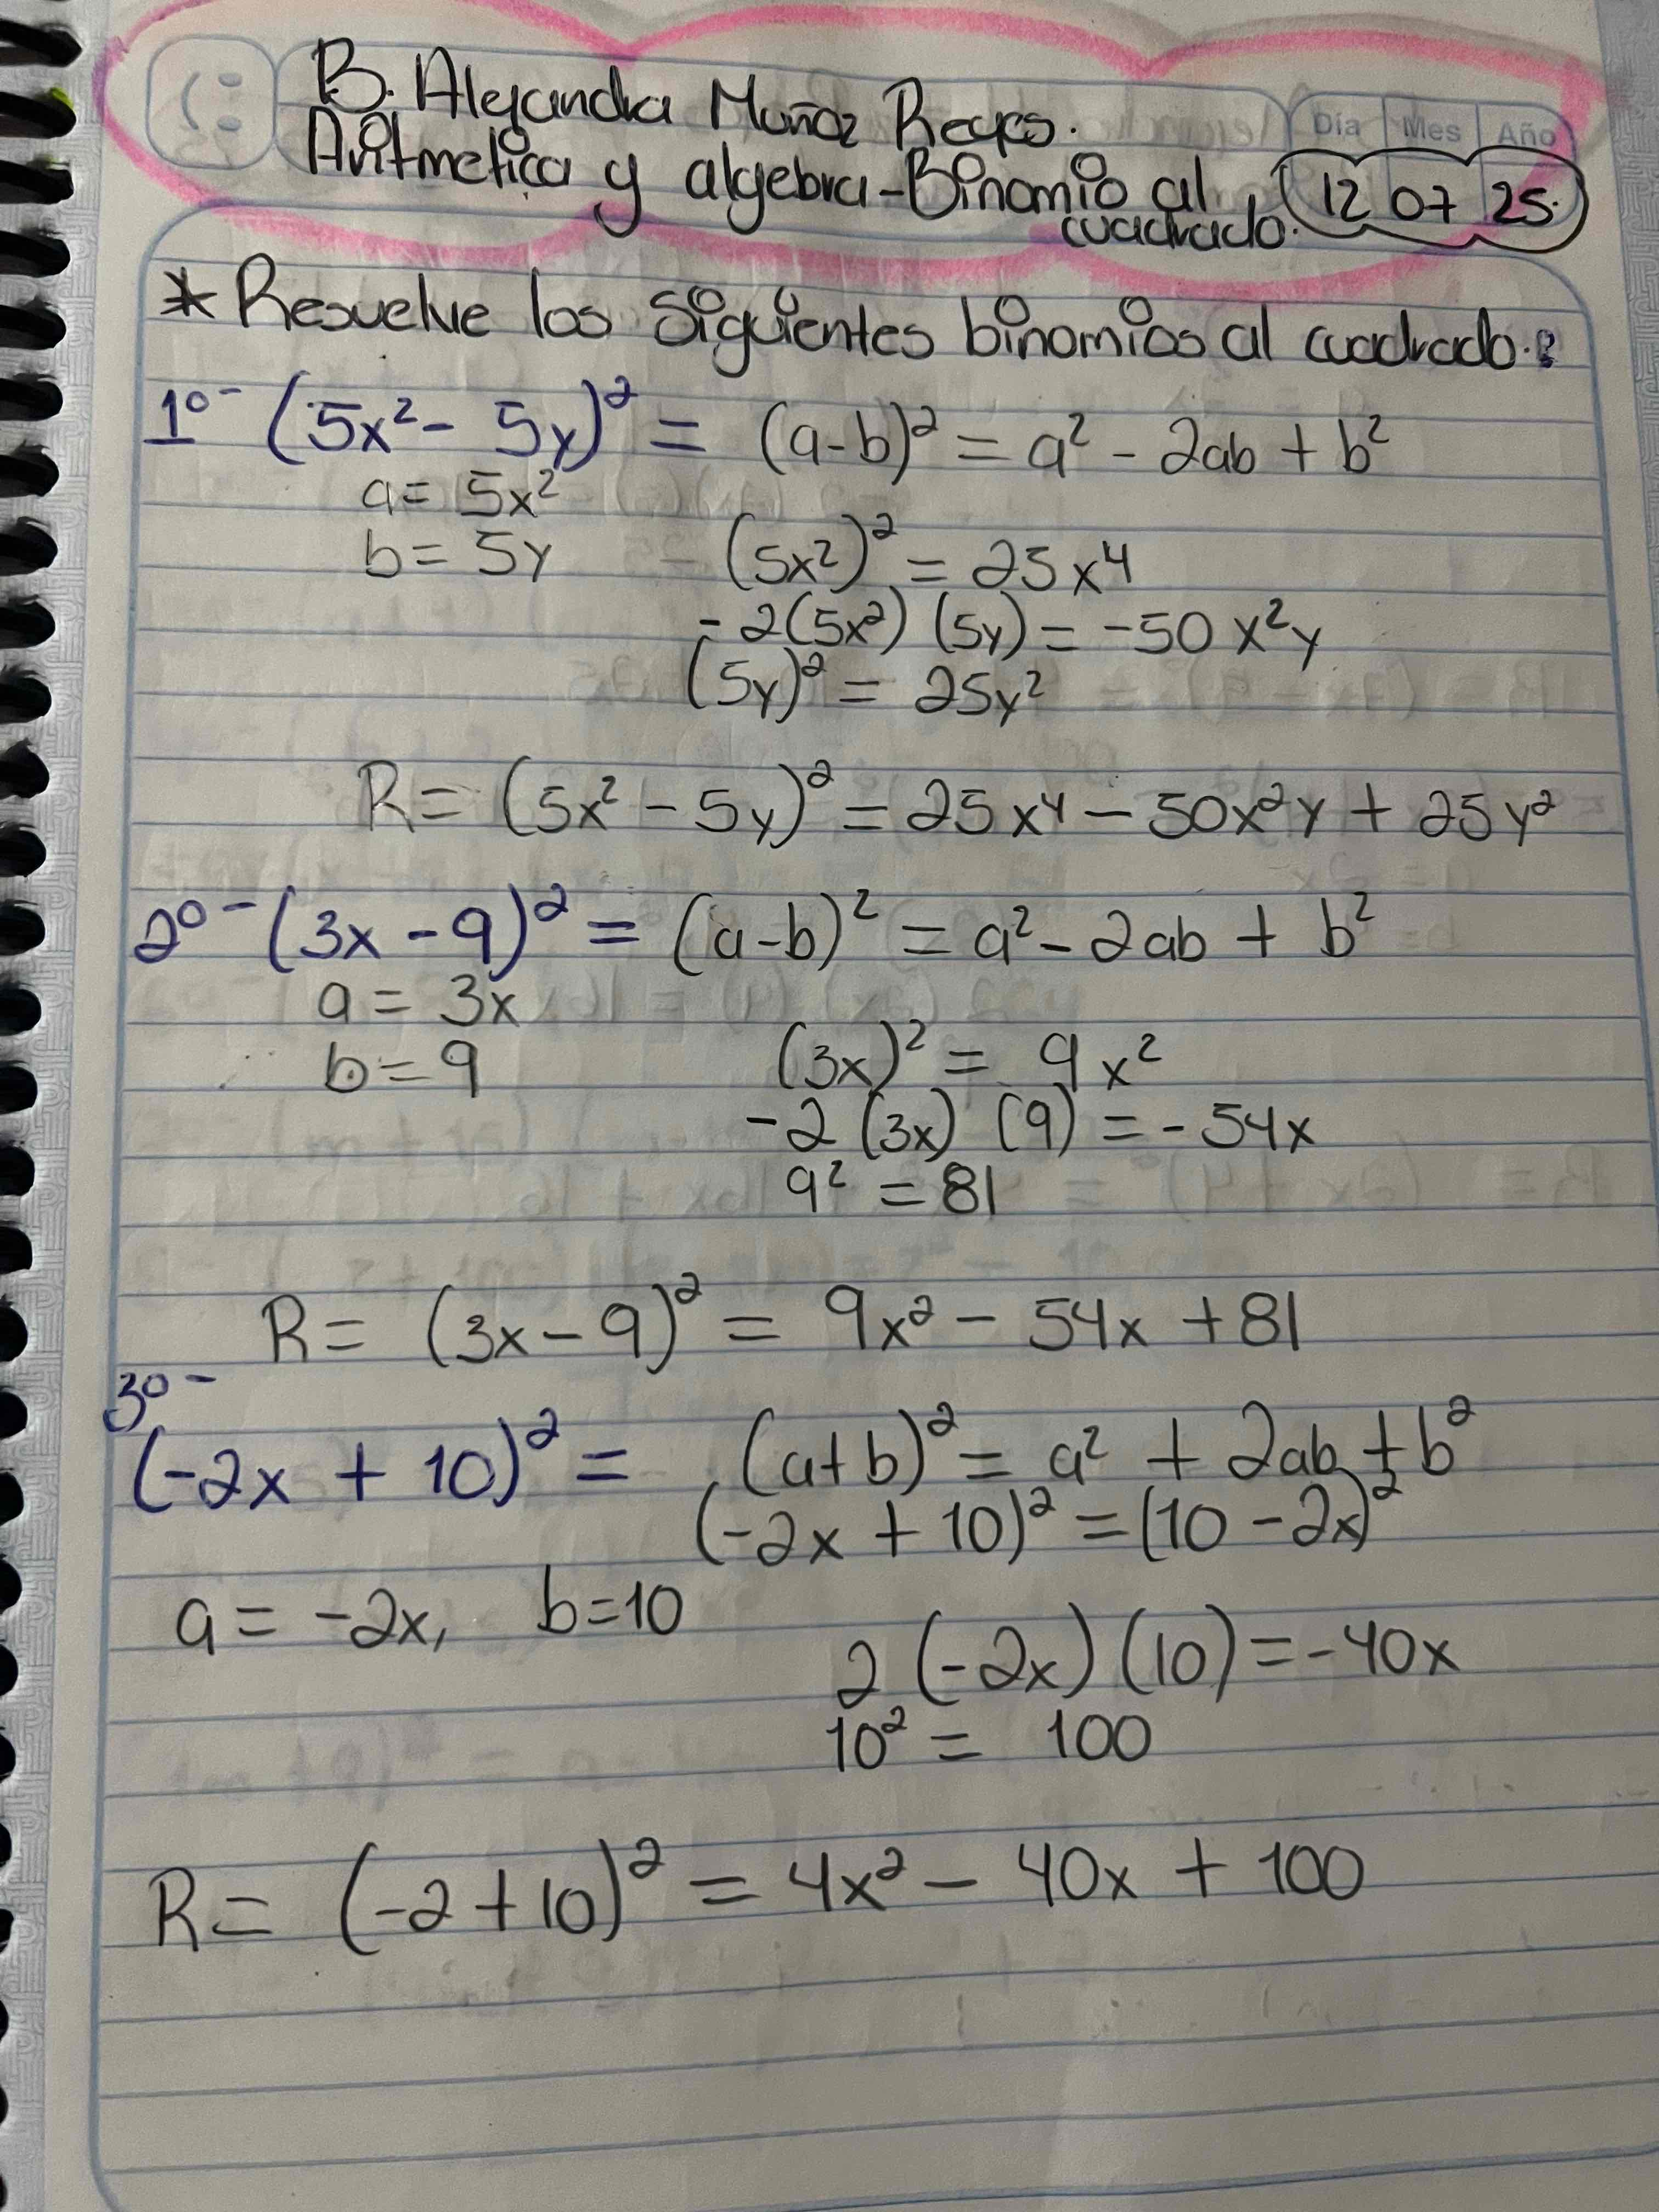 B. Alejandra Muñoz Reyes.
Día Mes Año
Aritmetica y algebra-Binomio al cuadrado.
12 07 25.
*Resuelve los siguientes binomios al cuadrado.:
1º- (5x² - 5y)² = (a-b)² = a² - 2ab + b²
a = 5x²
b = 5y
(5x²)² = 25x⁴
-2(5x²) (5y) = -50x²y
(5y)² = 25y²
R = (5x² - 5y)² = 25x⁴ - 50x²y + 25y²
2º- (3x - 9)² = (a-b)² = a² - 2ab + b²
a = 3x
b = 9
(3x)² = 9x²
-2 (3x) (9) = -54x
9² = 81
R = (3x - 9)² = 9x² - 54x + 81
3º-
(-2x + 10)² = (a+b)² = a² + 2ab + b²
(-2x + 10)² = (10 - 2x)²
a = -2x, b = 10
2 (-2x) (10) = -40x
10² = 100
R = (-2 + 10)² = 4x² - 40x + 100